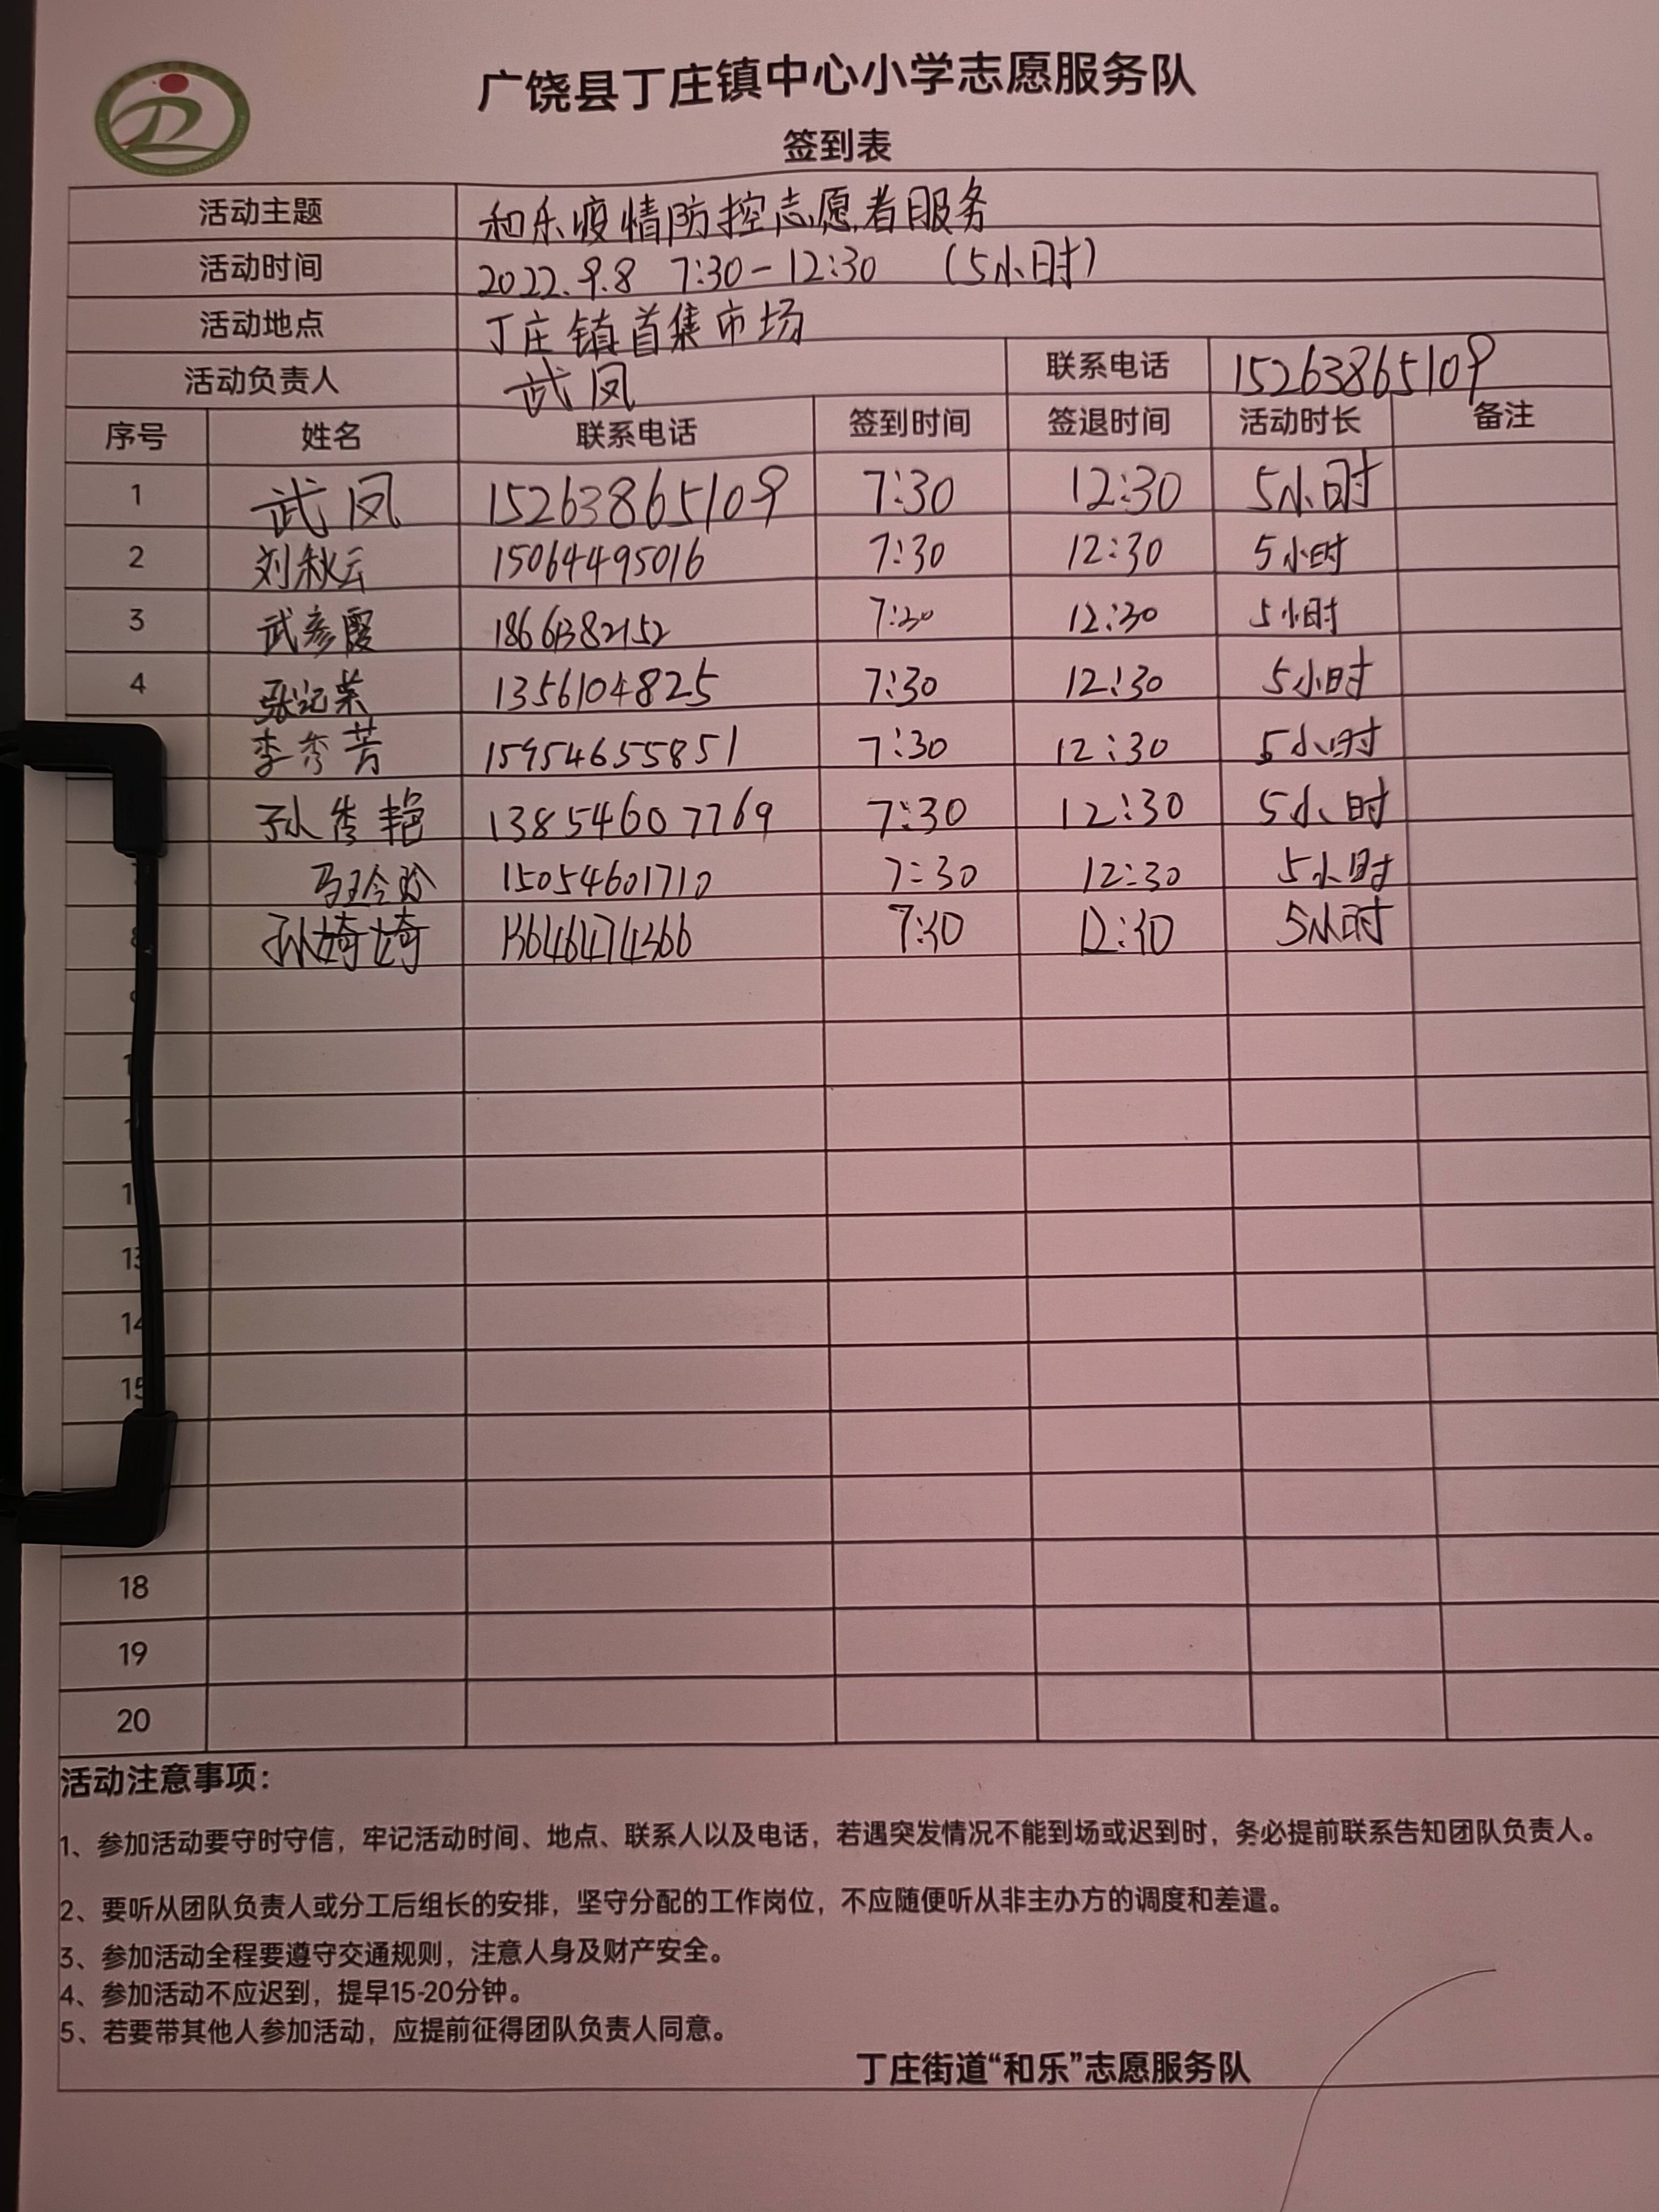 广饶县丁庄镇中心小学志愿服务队
签到表
活动主题 和乐疫情防控志愿者服务
活动时间 2022.9.8 7:30-12:30 (5小时)
活动地点 丁庄镇首集市场
活动负责人 武凤 联系电话 15263865109
序号 姓名 联系电话 签到时间 签退时间 活动时长 备注
1 武凤 15263865109 7:30 12:30 5小时
2 刘秋云 15064495016 7:30 12:30 5小时
3 武彦霞 18661382152 7:30 12:30 5小时
4 张 荣 1356104825 7:30 12:30 5小时
李秀芳 15954655851 7:30 12:30 5小时
孙秀艳 13854607769 7:30 12:30 5小时
马玲玲 15054601710 7:30 12:30 5小时
8 孙婍婍 13646474366 7:30 12:30 5小时
13
14
15
18
19
20
活动注意事项：
1、参加活动要守时守信，牢记活动时间、地点、联系人以及电话，若遇突发情况不能到场或迟到时，务必提前联系告知团队负责人。
2、要听从团队负责人或分工后组长的安排，坚守分配的工作岗位，不应随便听从非主办方的调度和差遣。
3、参加活动全程要遵守交通规则，注意人身及财产安全。
4、参加活动不应迟到，提早15-20分钟。
5、若要带其他人参加活动，应提前征得团队负责人同意。
丁庄街道“和乐”志愿服务队